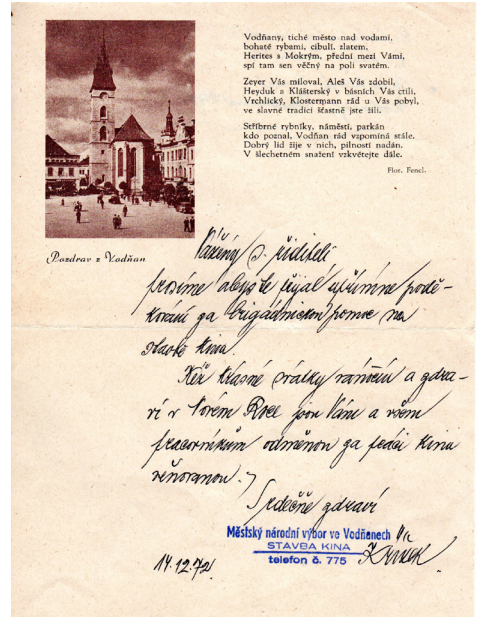 Vodňany, tiché město nad vodami,
bohaté rybami, cibulí, zlatem,
Herites s Mokrým, přední mezi Vámi,
spí tam sen věčný na poli svatém.
Zeyer Vás miloval, Aleš Vás zdobil,
Heyduk a Klášterský v básních Vás ctili,
Vrchlický, Klostermann rád u Vás pobyl,
ve slavné tradici šťastně jste žili.
Stříbrné rybníky, náměstí, parkán
kdo poznal, Vodňan rád vzpomíná stále.
Dobrý lid žije v nich, pilností nadán.
V šlechetném snažení vzkvétejte dále.
Flor. Fencl.
Pozdrav z Vodňan
Vážený s. řediteli
prosíme abyste přijal upřímné podě-
kování za brigádnickou pomoc na
stavbě kina.
Kéž krásné svátky vánoční a zdra-
ví v Novém Roce jsou Vám a všem
pracovníkům odměnou za práci kinu
věnovanou.
Srdečně zdraví
Městský národní výbor ve Vodňanech
STAVBA KINA
telefon č. 775
14.12.72